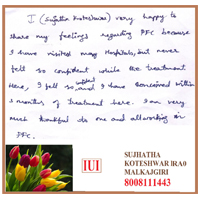 I (Sujatha Koteshwar) very happy to
share my feelings regarding PFC because
I have visited many Hospitals, but never
felt so confident while the treatment
Here, I felt so and I have conceived within
3 months of treatment here. I am very
much thankful do one and all working in
PFC.
IUI
SUJHATHA
KOTESHWAR IRA0
MALKAJGIRI
8008111443